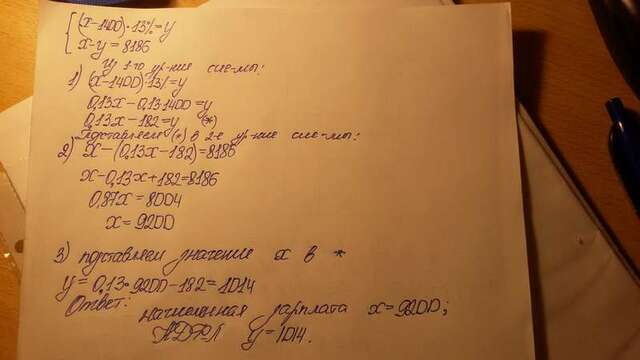 { (x-1400)·13%=y
x-y=8186
Из 1-го ур-ния сис-мы:
1) (x-1400)·13%=y
0,13x-0,13·1400=y
0,13x-182=y (*)
Подставляем (*) в 2-е ур-ние сис-мы:
2) x-(0,13x-182)=8186
x-0,13x+182=8186
0,87x=8004
x=9200
3) подставляем значение x в *
y=0,13*9200-182=1014
Ответ: начисленная зарплата x=9200;
НДФЛ y=1014.